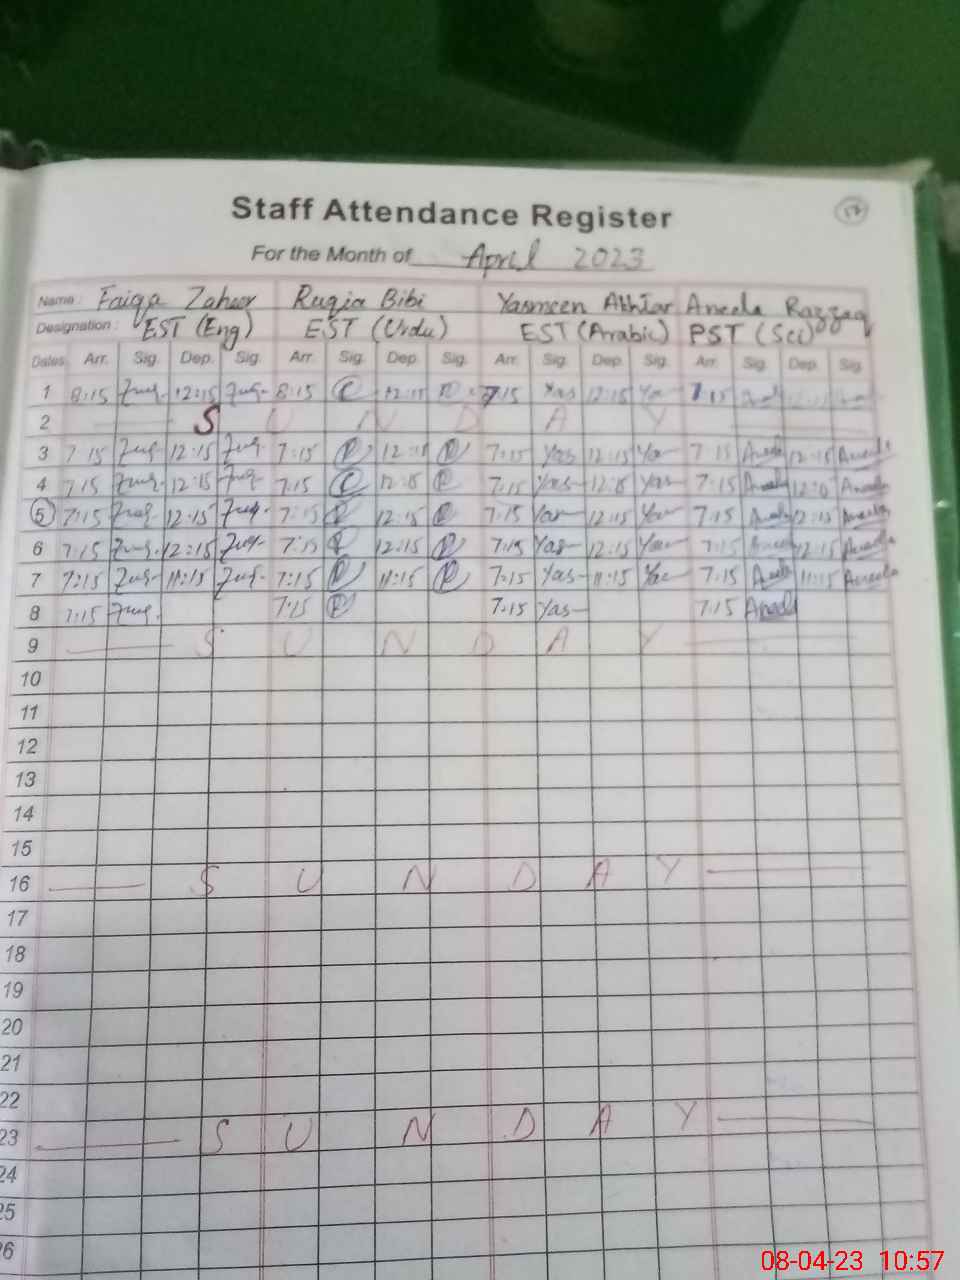 Staff Attendance Register
17
For the Month of April 2023
Name : Faiqa Zaheer Ruqia Bibi Yasmeen Akhtar Aneela Razzaq
Designation : EST (Eng) EST (Urdu) EST (Arabic) PST (Sci)
Dates Arr. Sig. Dep. Sig. Arr. Sig. Dep. Sig. Arr. Sig. Dep. Sig. Arr. Sig. Dep. Sig.
1 8:15 12:15 8:15 12:15 7:15 Yas 12:15 Yas 7:15
2 S U N D A Y
3 7:15 12:15 7:15 R 12:15 R 7:15 Yas 12:15 Yas 7:15 Aneela 12:15 Aneela
4 7:15 12:15 7:15 12:15 R 7:15 Yas 12:15 Yas 7:15 Aneela 12:15 Aneela
5 7:15 12:15 7:15 R 12:15 R 7:15 Yas 12:15 Yas 7:15 Aneela 12:15 Aneela
6 7:15 12:15 7:15 R 12:15 R 7:15 Yas 12:15 Yas 7:15 Aneela 12:15 Aneela
7 7:15 11:15 7:15 R 11:15 R 7:15 Yas 11:15 Yas 7:15 Aneela 11:15 Aneela
8 7:15 7:15 R 7:15 Yas 7:15 Aneela
9 S U N D A Y
10
11
12
13
14
15
16 S U N D A Y
17
18
19
20
21
22
23 S U N D A Y
24
25
26
08-04-23 10:57